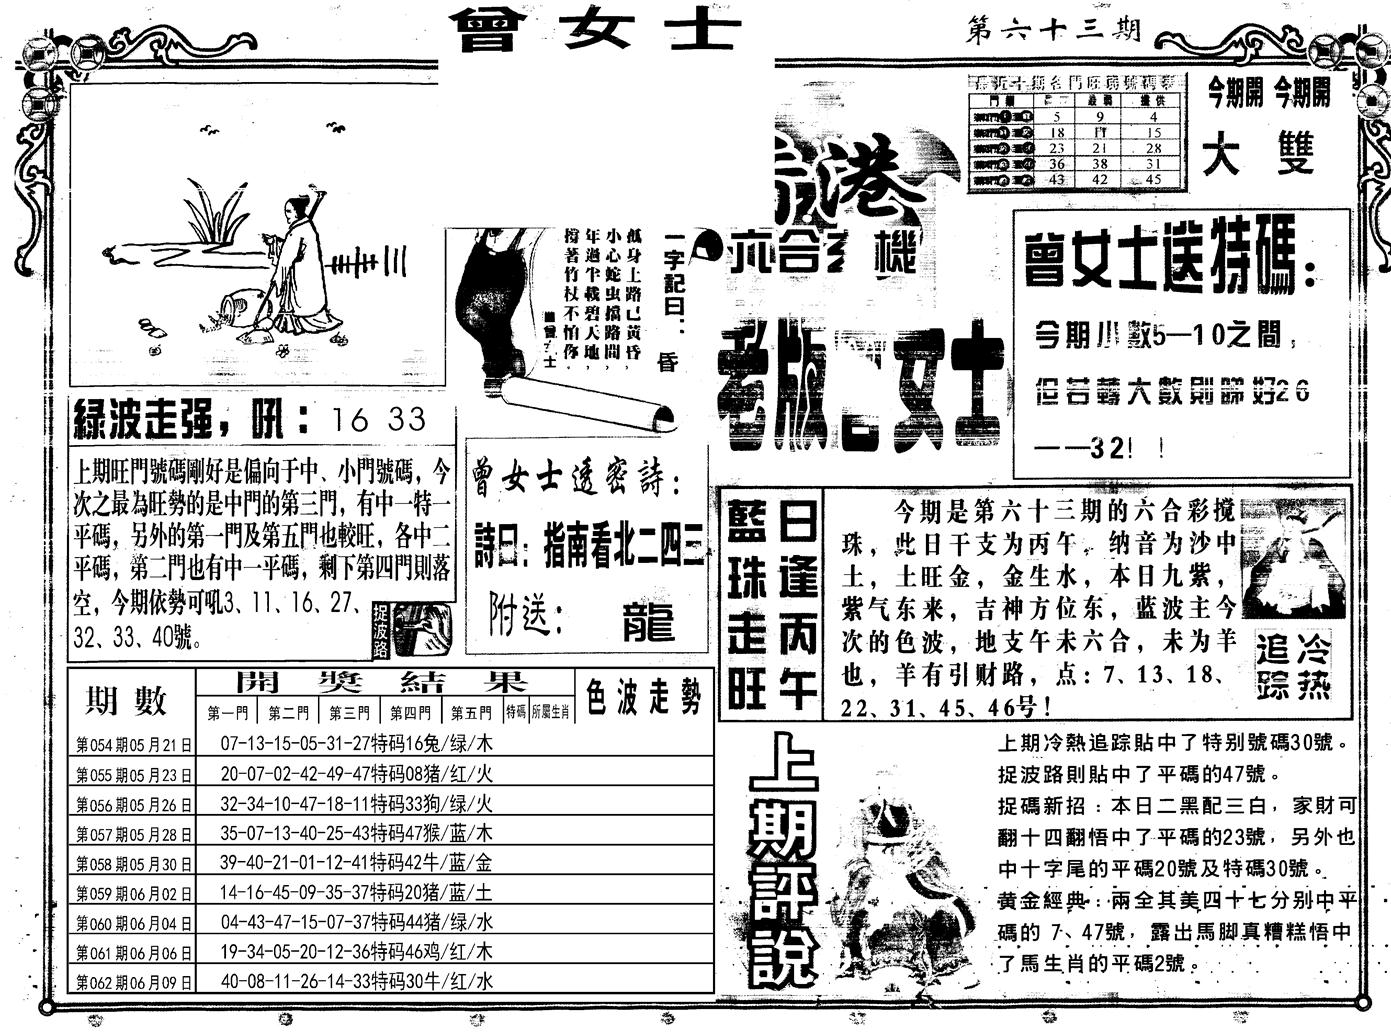 曾女士
第六十三期
門類 最旺 最弱 提供
5 9 4
18 15
23 21 28
36 38 31
43 42 45
今期開 今期開
大 雙
香港
六合玄機
老版曾女士
一字記曰：昏
孤身上路已黃昏，
小心蛇虫擋路間，
年過半載碧天地，
撐著竹杖不怕你．
曾女士送特碼：
今期小數5—10之間，
但若轉大數則睇好26
——32！！
綠波走强，吼：16 33
上期旺門號碼剛好是偏向于中、小門號碼，今
次之最為旺勢的是中門的第三門，有中一特一
平碼，另外的第一門及第五門也較旺，各中二
平碼，第二門也有中一平碼，剩下第四門則落
空，今期依勢可吼3、11、16、27、
32、33、40號。
捉波路
曾女士透密詩：
詩曰：指南看北二四三
附送：龍
日逢丙午
藍珠走旺
今期是第六十三期的六合彩搅
珠，此日干支为丙午，纳音为沙中
土，土旺金，金生水，本日九紫，
紫气东来，吉神方位东，蓝波主今
次的色波，地支午未六合，未为羊
也，羊有引财路，点：7、13、18、
22、31、45、46号！
冷热追踪
期數 開獎結果 色波走勢
第一門 第二門 第三門 第四門 第五門 特碼 所屬生肖
第054期05月21日 07-13-15-05-31-27特码16兔/绿/木
第055期05月23日 20-07-02-42-49-47特码08猪/红/火
第056期05月26日 32-34-10-47-18-11特码33狗/绿/火
第057期05月28日 35-07-13-40-25-43特码47猴/蓝/木
第058期05月30日 39-40-21-01-12-41特码42牛/蓝/金
第059期06月02日 14-16-45-09-35-37特码20猪/蓝/土
第060期06月04日 04-43-47-15-07-37特码44猪/绿/水
第061期06月06日 19-34-05-20-12-36特码46鸡/红/木
第062期06月09日 40-08-11-26-14-33特码30牛/红/水
上期評說
上期冷熱追踪貼中了特别號碼30號。
捉波路則貼中了平碼的47號。
捉碼新招：本日二黑配三白，家財可
翻十四翻悟中了平碼的23號，另外也
中十字尾的平碼20號及特碼30號。
黄金經典：兩全其美四十七分别中平
碼的 7、47號，露出馬脚真糟糕悟中
了馬生肖的平碼2號。